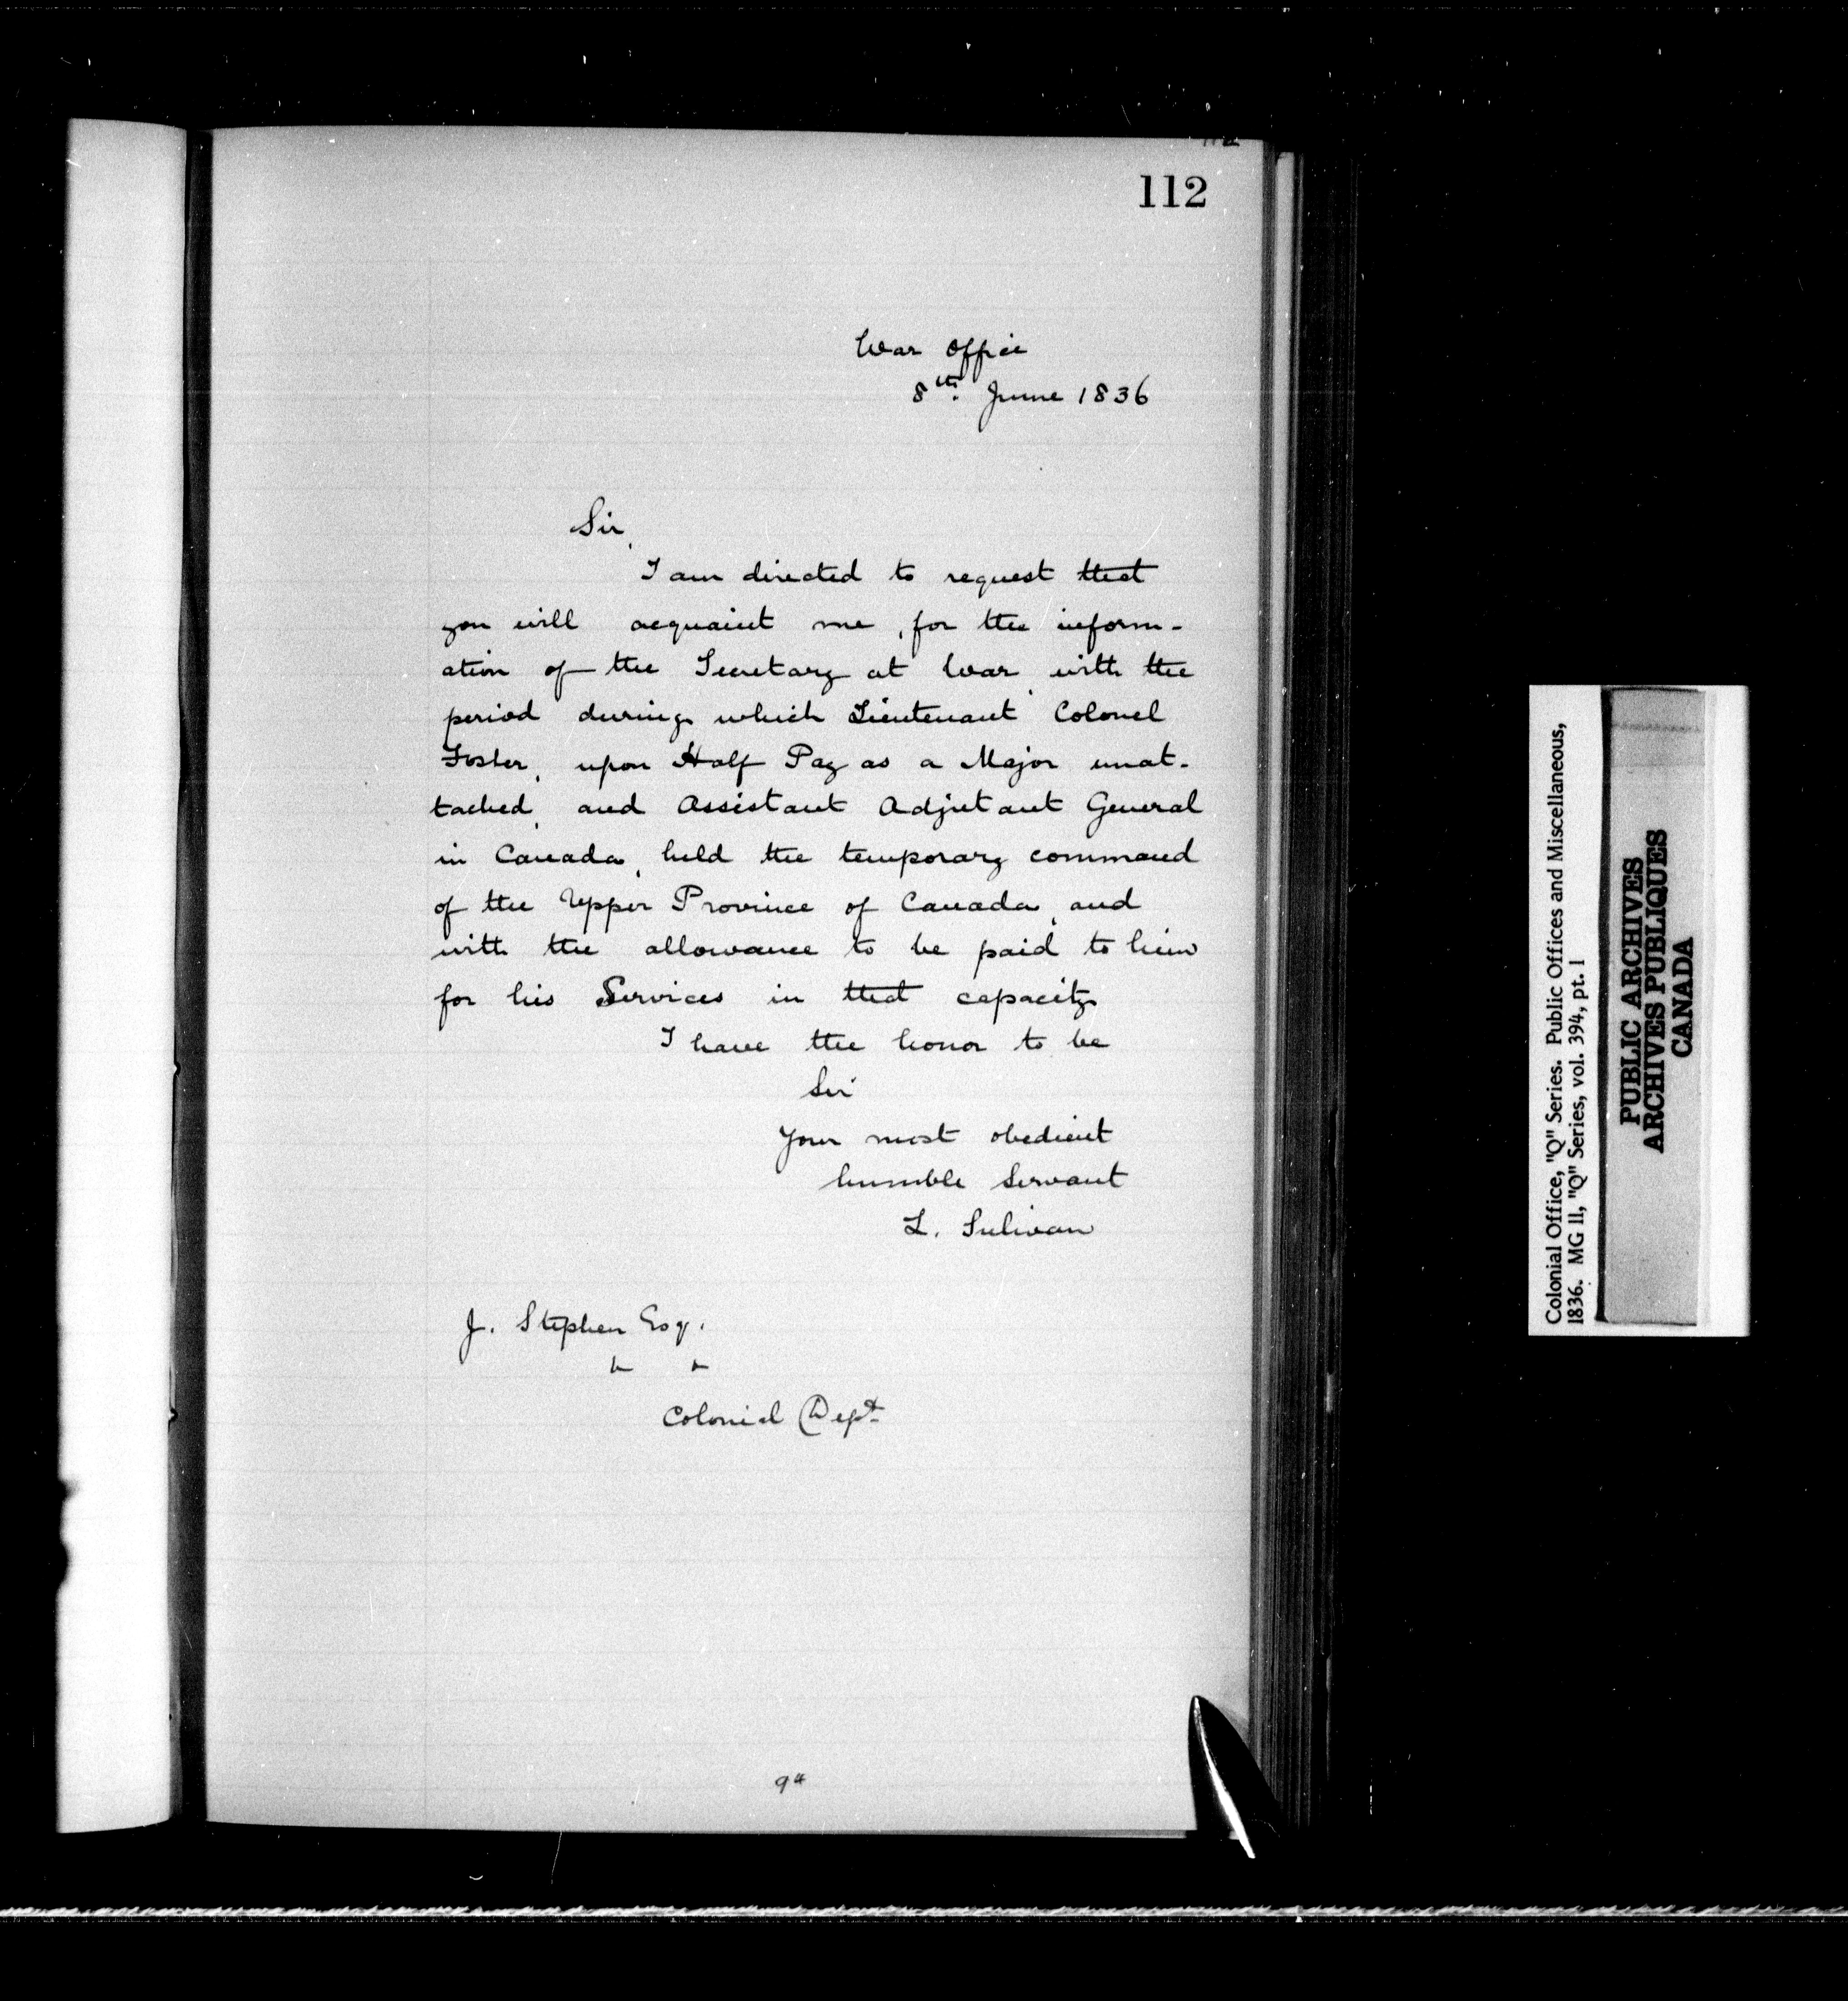 112
War Office
8th. June 1836
Sir,
I am directed to request that
you will acquaint me, for the inform-
ation of the Secretary at War, with the
period during which Lieutenant Colonel
Foster, upon Half Pay as a Major unat-
tached, and Assistant Adjutant General
in Canada, held the temporary command
of the Upper Province of Canada, and
with the allowance to be paid to him
for his Services in that capacity
I have the honor to be
Sir
Your most obedient
humble Servant
L. Sulivan
J. Stephen Esq.
Colonial Dept
Colonial Office, "Q" Series. Public Offices and Miscellaneous,
1836. MG 11, "Q" Series, vol. 394, pt. 1
PUBLIC ARCHIVES
ARCHIVES PUBLIQUES
CANADA